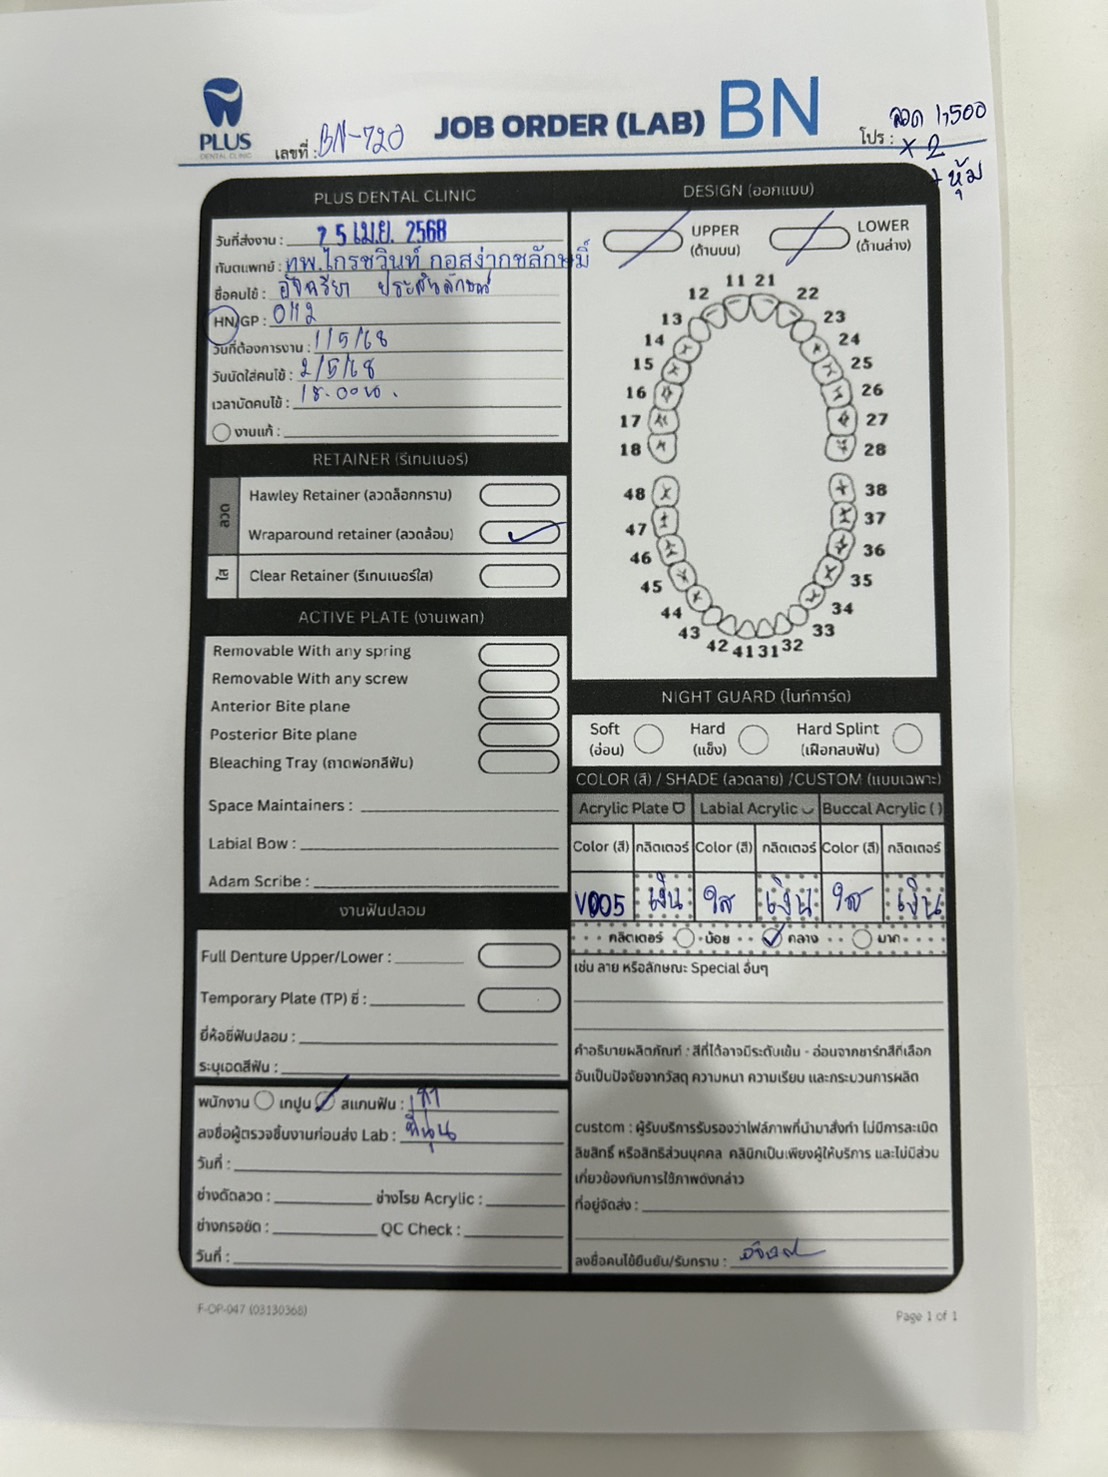 PLUS
DENTAL CLINIC
เลขที่ : BN-720
JOB ORDER (LAB) BN
โปร : ลวด 1,500
× 2
+ หุ้ม
PLUS DENTAL CLINIC
วันที่ส่งงาน : 25 เม.ย. 2568
ทันตแพทย์ : ทพ.ไกรชวินท์ กอสง่ากชลักษมิ์
ชื่อคนไข้ : อัจฉรียา ประสันลักษณ์
HN/GP : 0112
วันที่ต้องการงาน : 1/5/68
วันนัดใส่คนไข้ : 2/5/68
เวลานัดคนไข้ : 18.00 น.
งานแก้ :
RETAINER (รีเทนเนอร์)
ลวด
Hawley Retainer (ลวดล็อกกราม)
Wraparound retainer (ลวดล้อม)
ใส
Clear Retainer (รีเทนเนอร์ใส)
ACTIVE PLATE (งานเพลท)
Removable With any spring
Removable With any screw
Anterior Bite plane
Posterior Bite plane
Bleaching Tray (ถาดฟอกสีฟัน)
Space Maintainers :
Labial Bow :
Adam Scribe :
งานฟันปลอม
Full Denture Upper/Lower :
Temporary Plate (TP) ซี่ :
ยี่ห้อซี่ฟันปลอม :
ระบุเฉดสีฟัน :
พนักงาน เทปูน สแกนฟัน :
ลงชื่อผู้ตรวจชิ้นงานก่อนส่ง Lab :
วันที่ :
ช่างดัดลวด : ช่างโรย Acrylic :
ช่างกรอขัด : QC Check :
วันที่ :
DESIGN (ออกแบบ)
UPPER
(ด้านบน)
LOWER
(ด้านล่าง)
11 21
12 22
13 23
14 24
15 25
16 26
17 27
18 28
48 38
47 37
46 36
45 35
44 34
43 33
42 41 31 32
NIGHT GUARD (ไนท์การ์ด)
Soft
(อ่อน)
Hard
(แข็ง)
Hard Splint
(เฝือกสบฟัน)
COLOR (สี) / SHADE (ลวดลาย) /CUSTOM (แบบเฉพาะ)
Acrylic Plate Labial Acrylic Buccal Acrylic ( )
Color (สี) กลิตเตอร์ Color (สี) กลิตเตอร์ Color (สี) กลิตเตอร์
V005 เงิน ใส เงิน ใส เงิน
กลิตเตอร์ น้อย กลาง มาก
เช่น ลาย หรือลักษณะ Special อื่นๆ
คำอธิบายผลิตภัณฑ์ : สีที่ได้อาจมีระดับเข้ม - อ่อนจากชาร์ทสีที่เลือก
อันเป็นปัจจัยจากวัสดุ ความหนา ความเรียบ และกระบวนการผลิต
custom : ผู้รับบริการรับรองว่าไฟล์ภาพที่นำมาสั่งทำ ไม่มีการละเมิด
ลิขสิทธิ์ หรือสิทธิส่วนบุคคล คลินิกเป็นเพียงผู้ให้บริการ และไม่มีส่วน
เกี่ยวข้องกับการใช้ภาพดังกล่าว
ที่อยู่จัดส่ง :
ลงชื่อคนไข้ยืนยัน/รับทราบ :
F-OP-047 (03130368)
Page 1 of 1